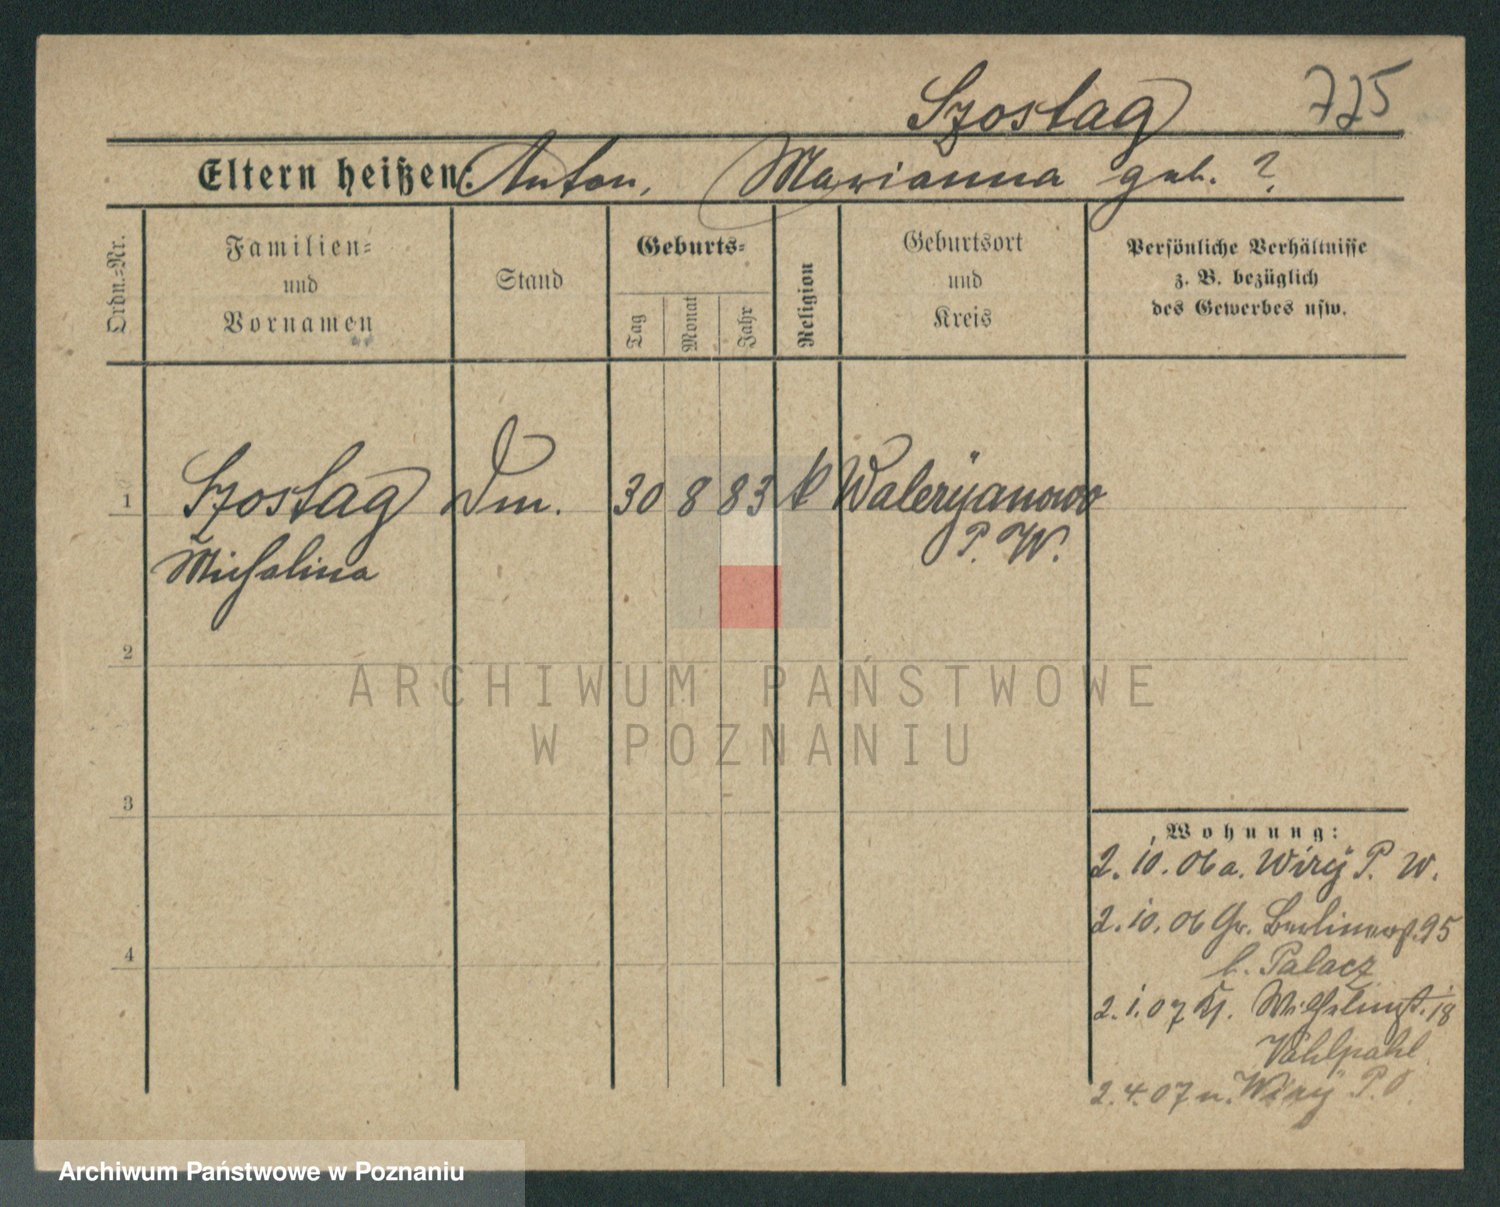 Szostag 725
Eltern heißen: Anton, Marianna geb. ?
Ordn.-Nr.
Familien-
und
Vornamen
Stand
Geburts-
Tag
Monat
Jahr
Religion
Geburtsort
und
Kreis
Persönliche Verhältnisse
z. B. bezüglich
des Gewerbes usw.
1 Szostag Dm. 30 8 83 k Walerÿanowo
P. W.
Michalina
2
3
4
Wohnung:
2. 10. 06 a. Wirÿ P. W.
2. 10. 06 Gr. Berlinerst. 95
b. Palacz
2. 1. 07 Wilhelmst. 18
2. 4. 07 n. Wirÿ P. O.
ARCHIWUM PAŃSTWOWE
W POZNANIU
Archiwum Państwowe w Poznaniu